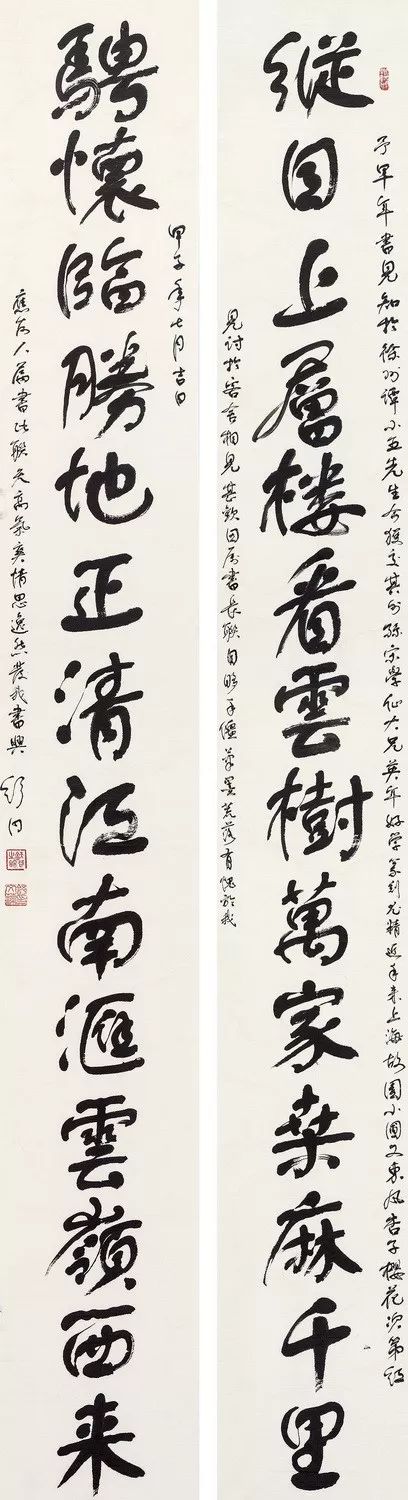 縱目上層樓看雲樹萬家桑麻千里
予早年書見知於徐州譚小五先生介孫宗學仙大兄英年好学篆刻尤精近年来上海故園小圃又東风杏子櫻花次第
見討於客舍相見甚歡因属書長聯自眎手僵筆墨荒落有愧於我
騁懷臨勝地正清江南滙雲嶺西来
甲子年七月吉日
應友人属書此聯天高氣爽情思逸然發我書興
舒同